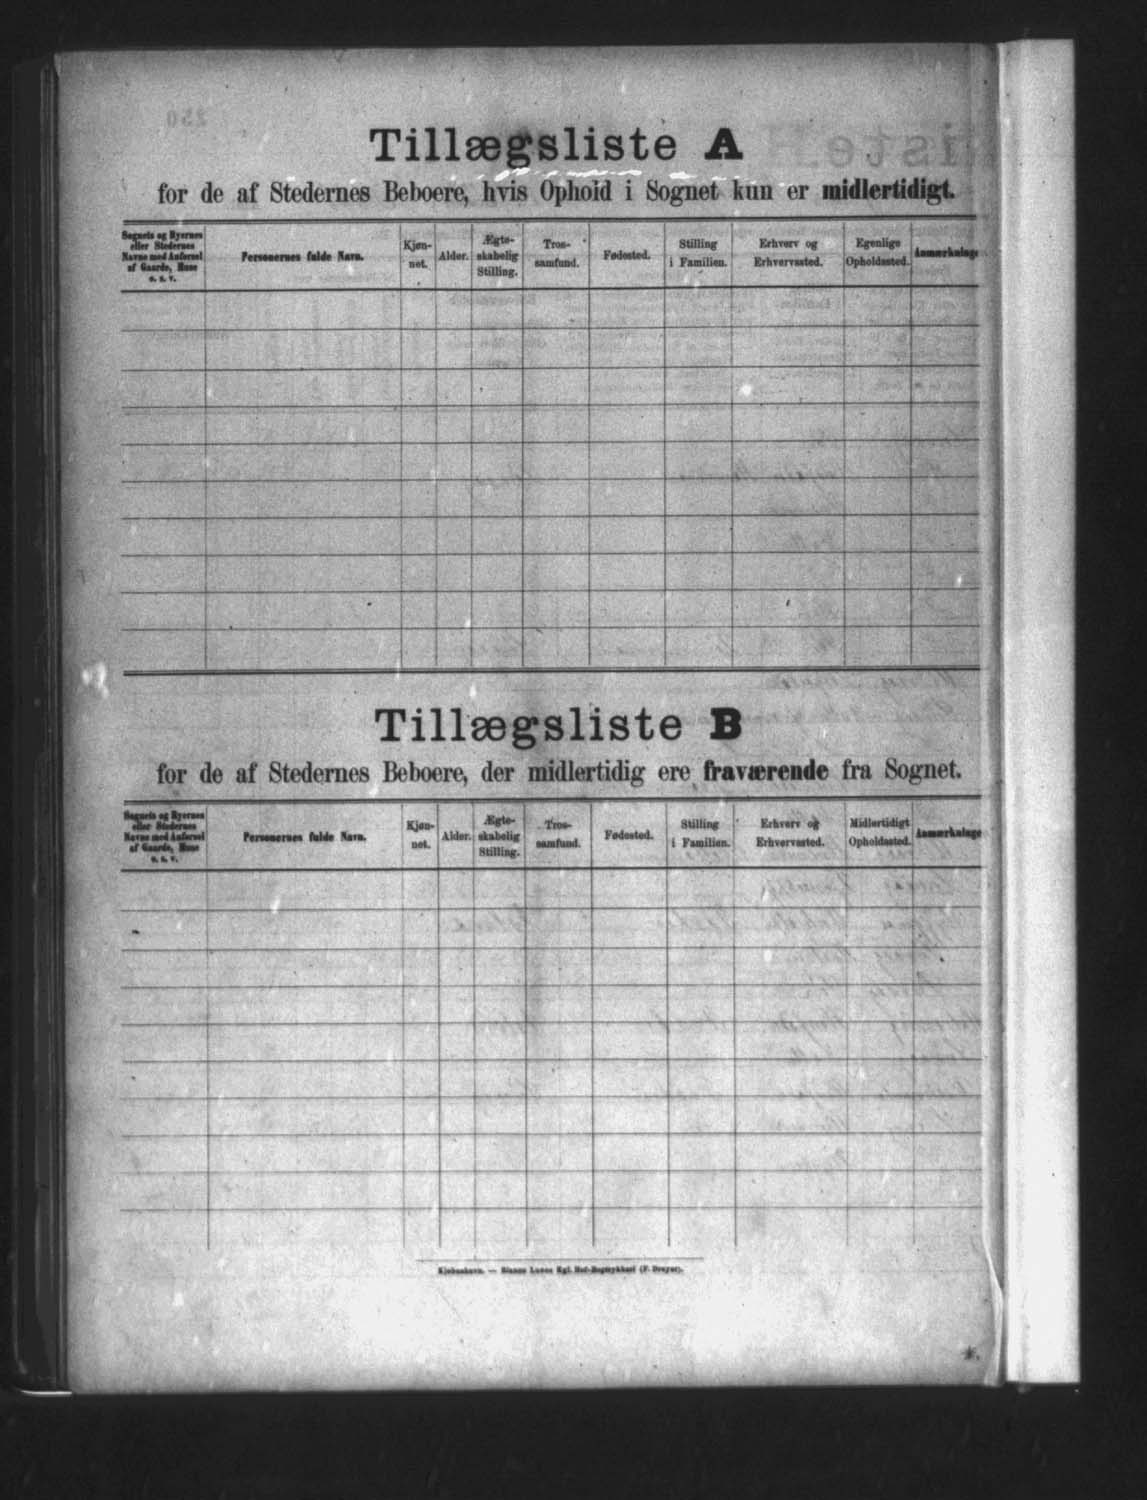 Tillægsliste A
for de af Stedernes Beboere, hvis Ophold i Sognet kun er midlertidigt.
Sognets og Byernes eller Stedernes Navne med Anførsel af Gaarde, Huse o. s. v.
Personernes fulde Navn.
Kjøn-
net.
Alder.
Ægte-
skabelig
Stilling.
Tros-
samfund.
Fødested.
Stilling
i Familien.
Erhverv og
Erhvervssted.
Egenlige
Opholdssted.
Anmærkninge
Tillægsliste B
for de af Stedernes Beboere, der midlertidig ere fraværende fra Sognet.
Sognets og Byernes
eller Stedernes
Navne med Anførsel
af Gaarde, Huse
o. s. v.
Personernes fulde Navn.
Kjøn-
net.
Alder.
Ægte-
skabelig
Stilling.
Tros-
samfund.
Fødested.
Stilling
i Familien.
Erhverv og
Erhvervssted.
Midlertidigt
Opholdssted.
Anmærkninge
Kjøbenhavn. — Bianco Lunos Kgl. Hof-Bogtrykkeri (F. Dreyer).